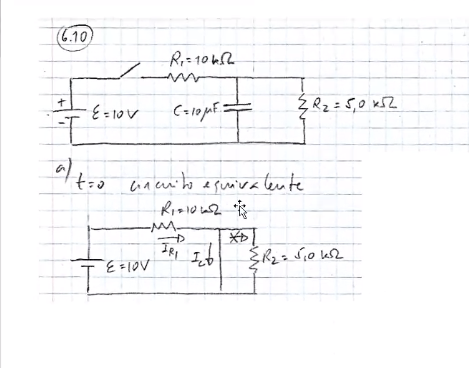 6.10
R₁=10kΩ
+
-
ε=10V
C=10μF
R₂=5,0 kΩ
a) t=0 circuito equivalente
R₁=10kΩ
I_R₁
I_c
ε=10V
R₂=5,0kΩ